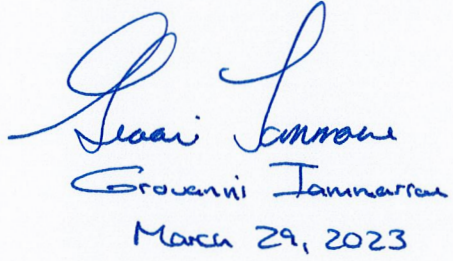 Giovanni Iammarrone
Giovanni Iammarrone
March 29, 2023